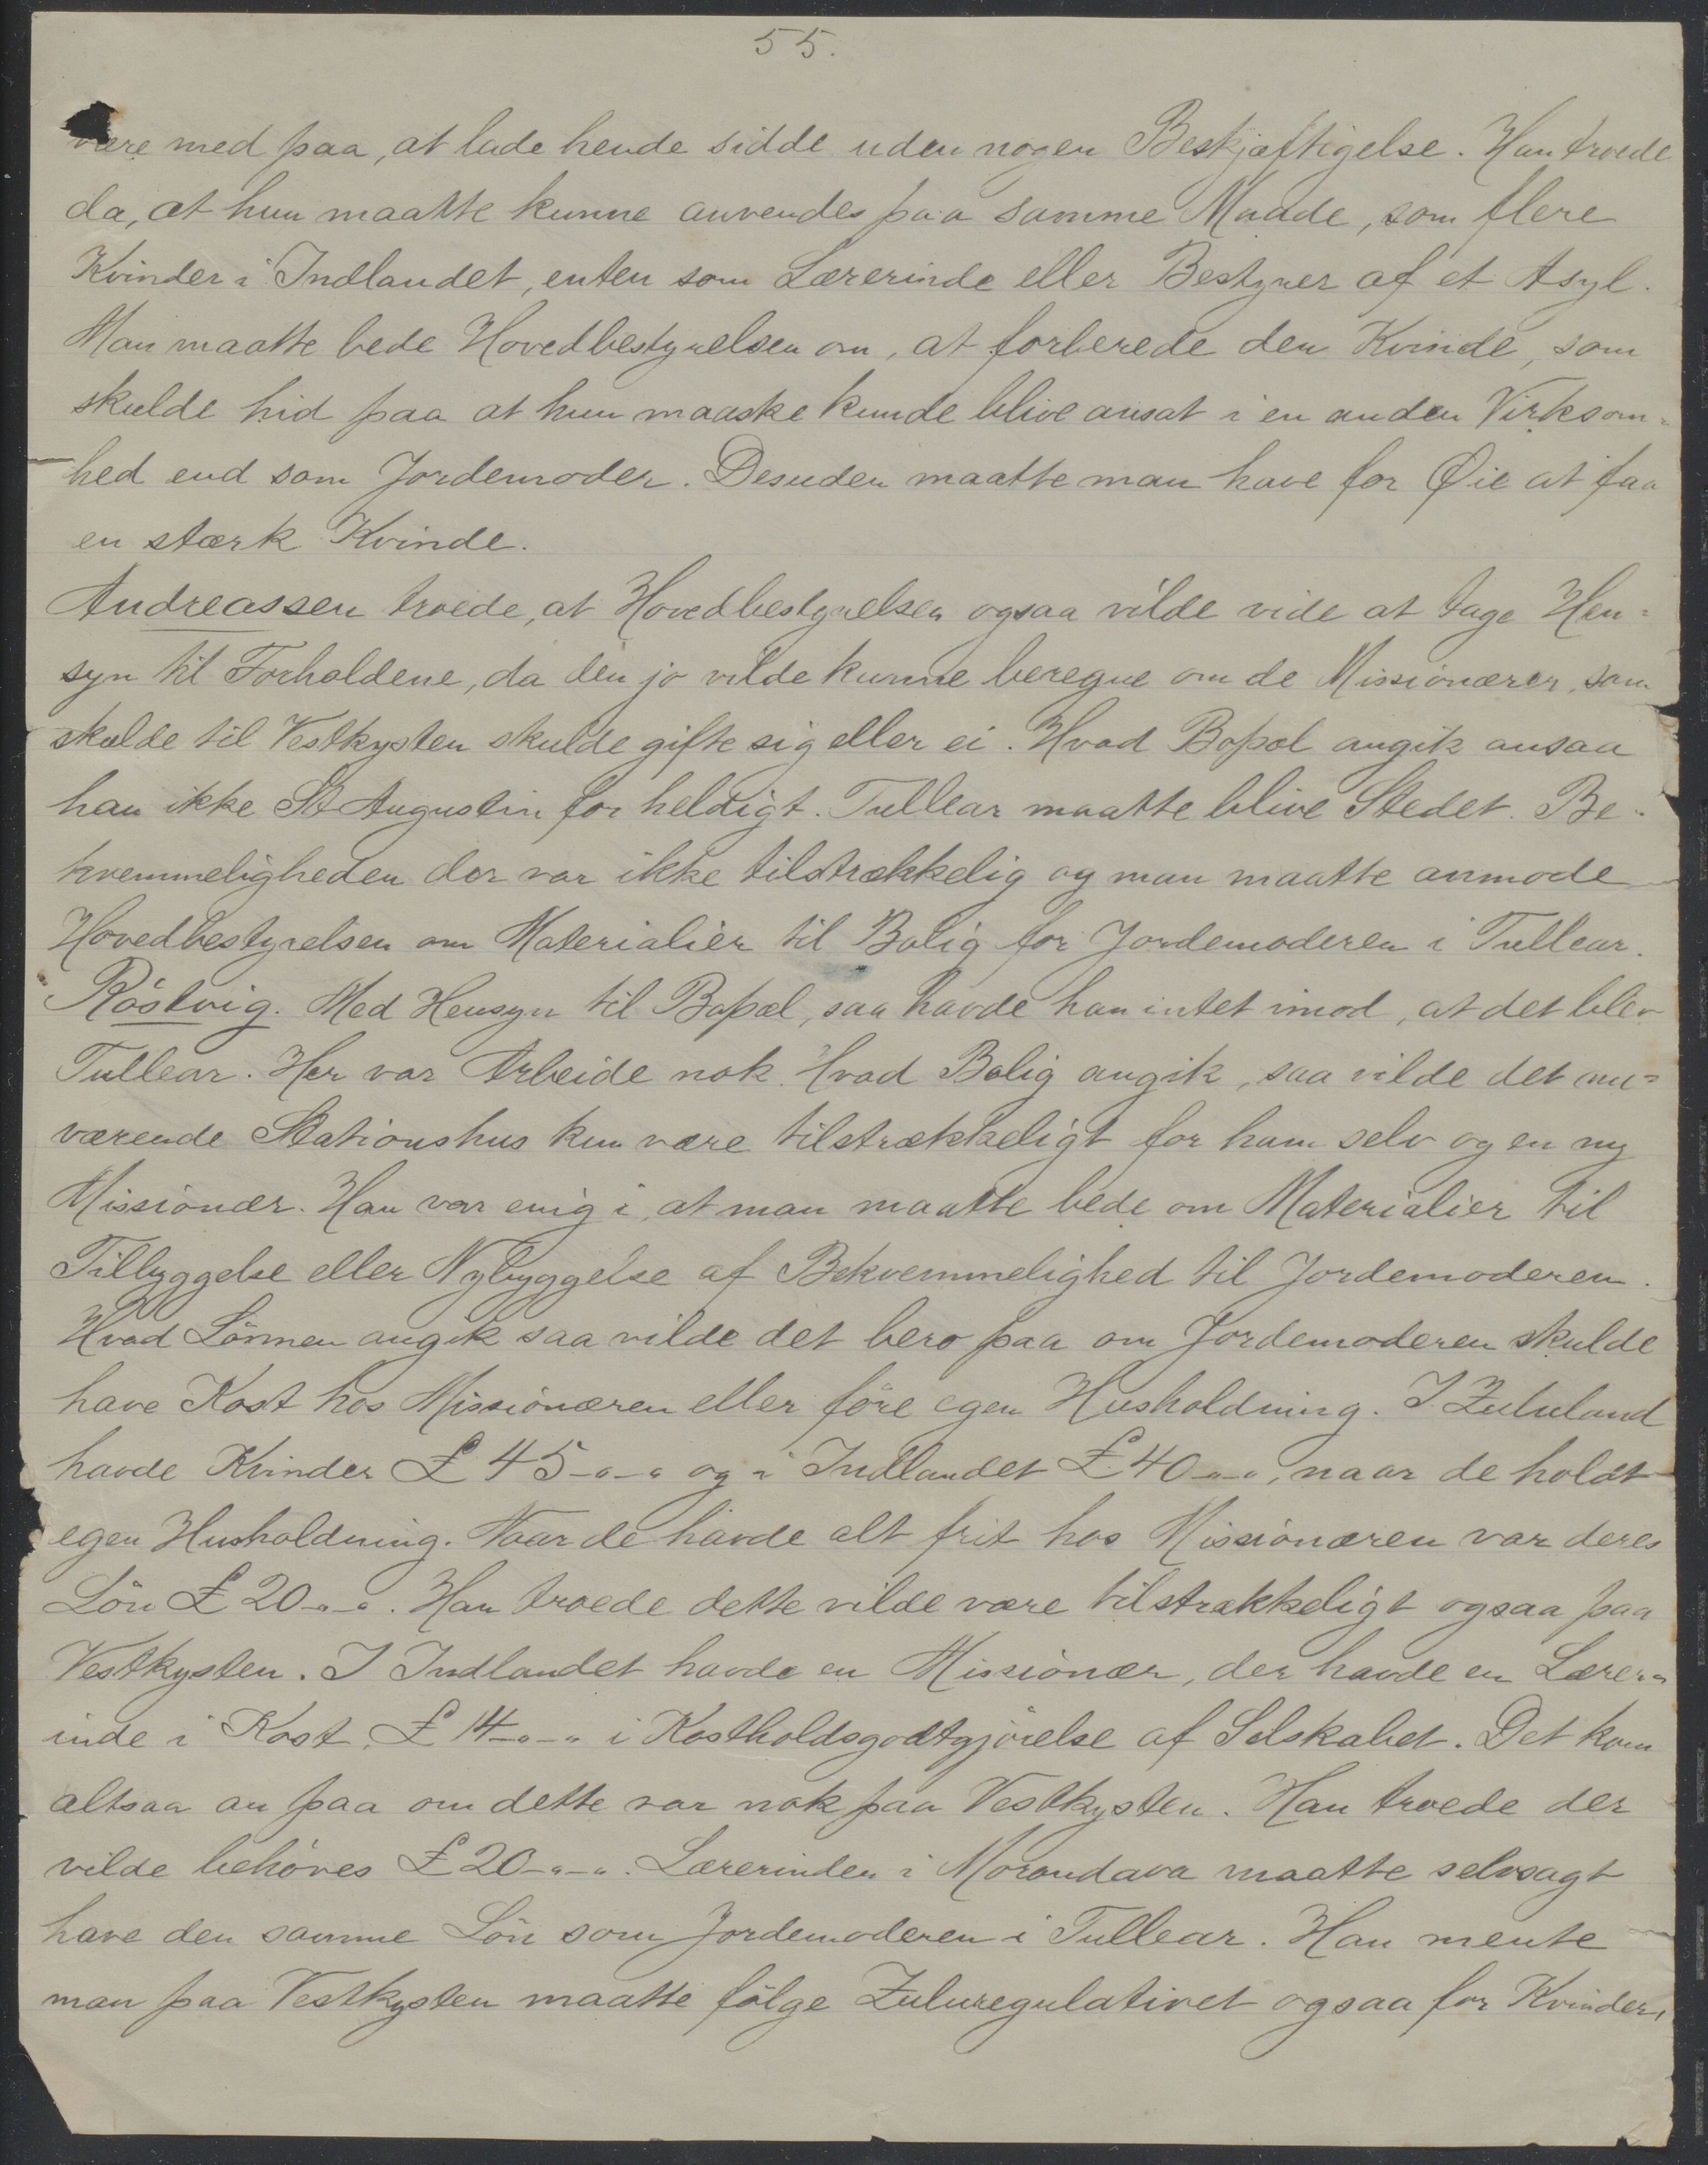 55.
være med paa, at lade hende sidde uden nogen Beskjæftigelse. Han troede
da, at hun maatte kunne anvendes paa samme Maade, som flere
Kvinder i Indlandet, enten som Lærerinde eller Bestyrer af et Asyl.
Man maatte bede Hovedbestyrelsen om, at forberede den Kvinde, som
skulde hid paa at hun maaske kunde blive ansat i en anden Virksom=
hed end som Jordemoder. Desuden maatte man have for Øie at faa
en stærk Kvinde.
Andreassen troede, at Hovedbestyrelsen ogsaa vilde vide at tage Hen=
syn til Forholdene, da den jo vilde kunne beregne om de Missionærer, som
skulde til Vestkysten skulde gifte sig eller ei. Hvad Bopæl angik ansaa
han ikke St Augustin for heldigt. Tullear maatte blive Stedet. Be-
kvemmeligheden der var ikke tilstrækkelig og man maatte anmode
Hovedbestyrelsen om Materialier til Bolig for Jordemoderen i Tullear.
Röstvig. Med Hensyn til Bopæl, saa havde han intet imod, at det blev
Tullear. Her var Arbeide nok. Hvad Bolig angik, saa vilde det nu=
værende Stationshus kun være tilstrækkeligt for ham selv og en ny
Missionær. Han var enig i, at man maatte bede om Materialier til
Tilbyggelse eller Nybyggelse af Bekvemmelighed til Jordemoderen.
Hvad Lönnen angik saa vilde det bero paa om Jordemoderen skulde
have Kost hos Missionæren eller före egen Husholdning. I Zululand
havde Kvinder £ 45-"-" og i Indlandet £ 40-"-", naar de holdt
egen Husholdning. Naar de havde alt frit hos Missionæren var deres
Lön £ 20-"-". Han troede dette vilde være tilstrækkeligt ogsaa paa
Vestkysten. I Indlandet havde en Missionær, der havde en Lærer=
inde i Kost £ 14-"-" i Kostholdsgodtgjörelse af Selskabet. Det kom
altsaa an paa om dette var nok paa Vestkysten. Han troede der
vilde behöves £ 20-"-". Lærerinden i Morondava maatte selvsagt
have den samme Lön som Jordemoderen i Tullear. Han mente
man paa Vestkysten maatte fölge Zuluregulativet ogsaa for Kvinder,